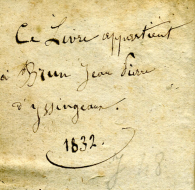 Ce Livre appartient
à Brun Jean Pierre
d'Yssingeaux.
1832.